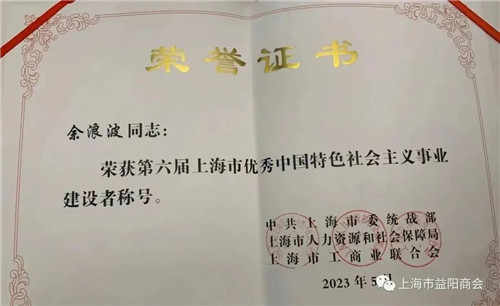 荣誉证书
余浪波同志：
荣获第六届上海市优秀中国特色社会主义事业
建设者称号。
中共上海市委统战部
上海市人力资源和社会保障局
上海市工商业联合会
2023年5月
上海市益阳商会